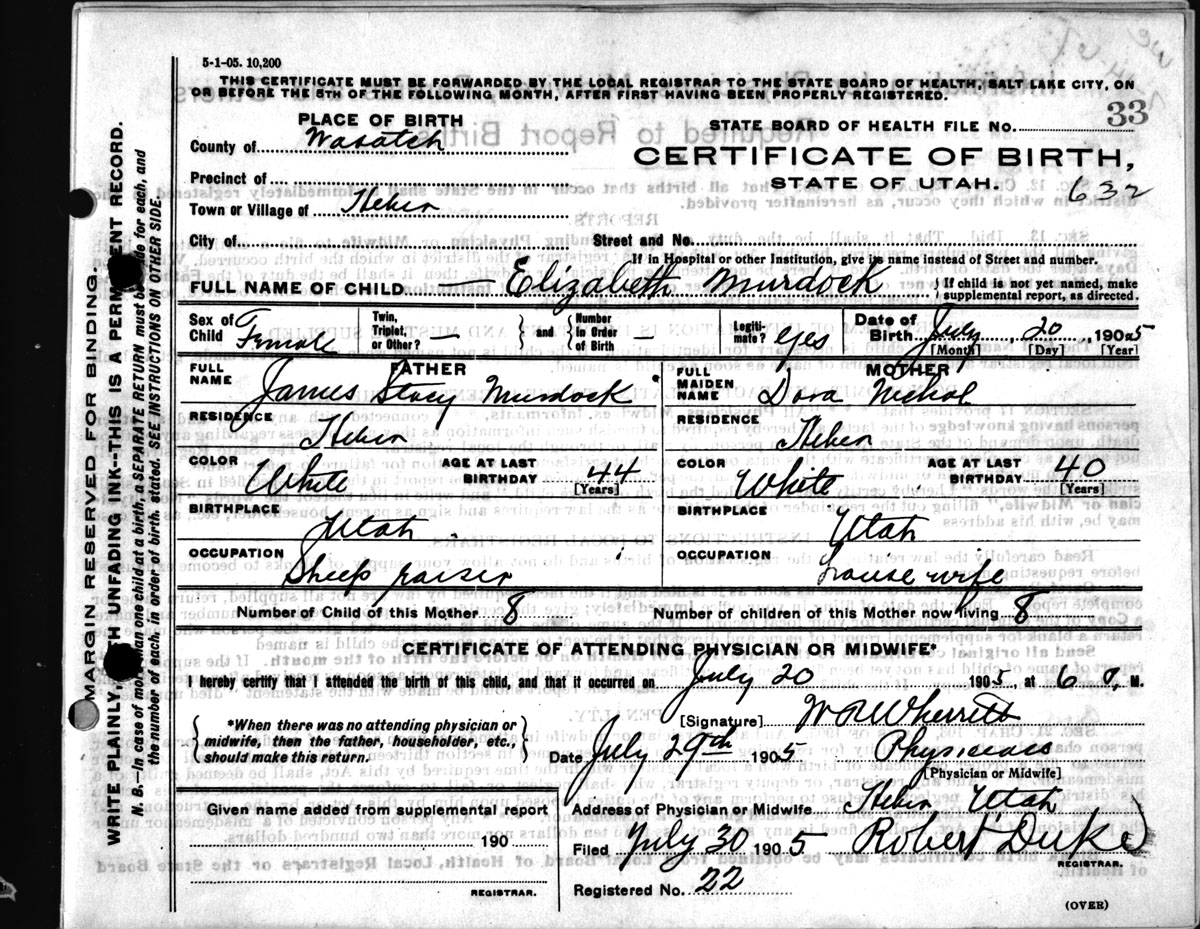 5-1-05. 10,200
THIS CERTIFICATE MUST BE FORWARDED BY THE LOCAL REGISTRAR TO THE STATE BOARD OF HEALTH, SALT LAKE CITY, ON
OR BEFORE THE 5TH OF THE FOLLOWING MONTH, AFTER FIRST HAVING BEEN PROPERLY REGISTERED.
33
PLACE OF BIRTH
STATE BOARD OF HEALTH FILE No.
County of Wasatch
CERTIFICATE OF BIRTH,
Precinct of
STATE OF UTAH.
632
Town or Village of Heber
City of
Street and No.
If in Hospital or other Institution, give its name instead of Street and number.
FULL NAME OF CHILD Elizabeth Murdock
If child is not yet named, make
supplemental report, as directed.
Sex of Child Female
Twin, Triplet, or Other? —
and
Number In Order of Birth —
Legiti-mate? yes
Date of Birth July 20, 1905
[Month] [Day] [Year]
FATHER
FULL NAME James Stacy Murdock
MOTHER
FULL MAIDEN NAME Dora Nichol
RESIDENCE Heber
RESIDENCE Heber
COLOR White
AGE AT LAST BIRTHDAY 44
[Years]
COLOR White
AGE AT LAST BIRTHDAY 40
[Years]
BIRTHPLACE Utah
BIRTHPLACE Utah
OCCUPATION Sheep raiser
OCCUPATION house wife
Number of Child of this Mother 8
Number of children of this Mother now living 8
CERTIFICATE OF ATTENDING PHYSICIAN OR MIDWIFE*
I hereby certify that I attended the birth of this child, and that it occurred on July 20 1905, at 6 P. M.
*When there was no attending physician or
midwife, then the father, householder, etc.,
should make this return.
[Signature] W R Wherritt
Date July 29th 1905 Physician
[Physician or Midwife]
Given name added from supplemental report
190
REGISTRAR.
Address of Physician or Midwife Heber Utah
Filed July 30 1905 Robert Duke
REGISTRAR.
Registered No. 22
(OVER)
MARGIN RESERVED FOR BINDING.
WRITE PLAINLY, WITH UNFADING INK--THIS IS A PERMANENT RECORD.
N. B.—In case of more than one child at a birth, a SEPARATE RETURN must be made for each, and
the number of each, in order of birth, stated. (SEE INSTRUCTIONS ON OTHER SIDE.